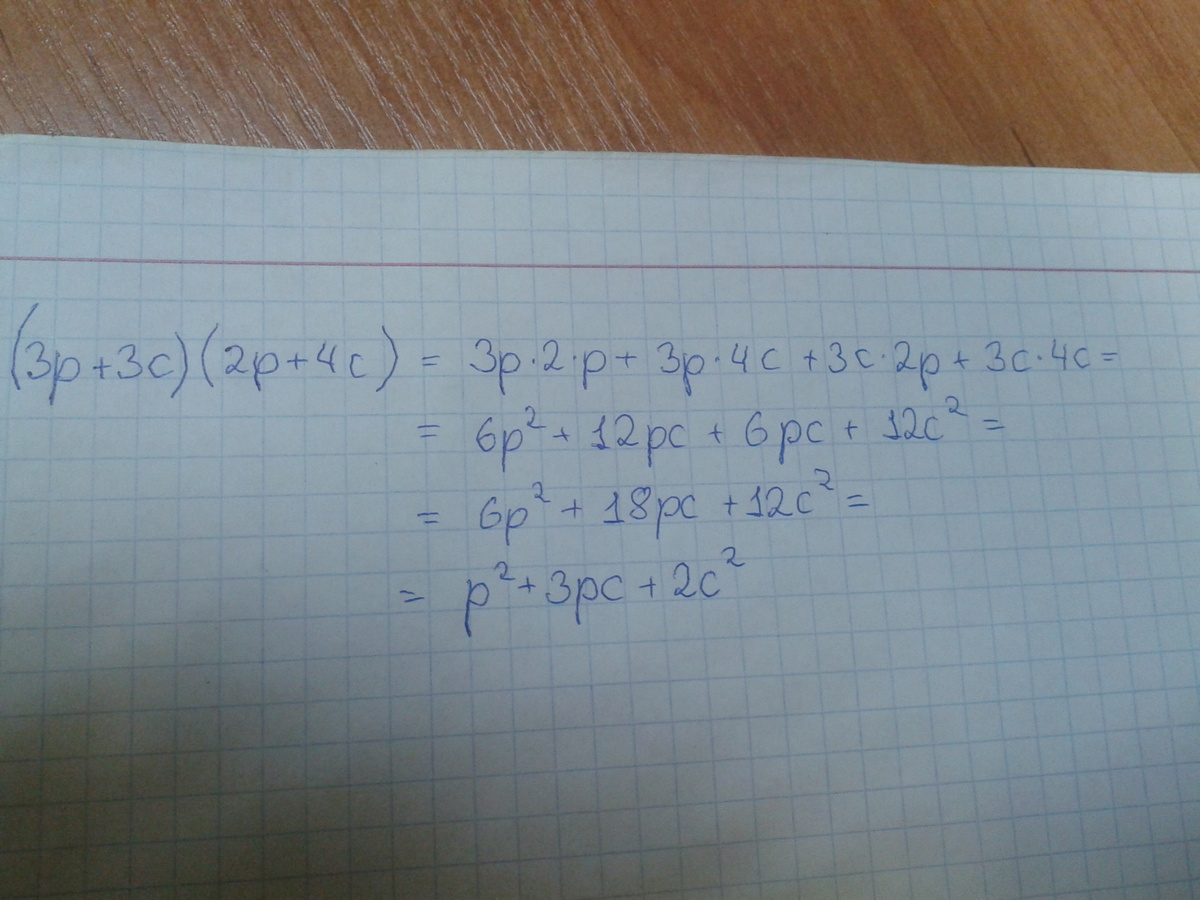 (3p+3c)(2p+4c) = 3p·2·p+ 3p·4c +3c·2p+ 3c·4c=
= 6p²+ 12pc + 6pc + 12c²=
= 6p²+ 18pc +12c²=
= p²+3pc+2c²